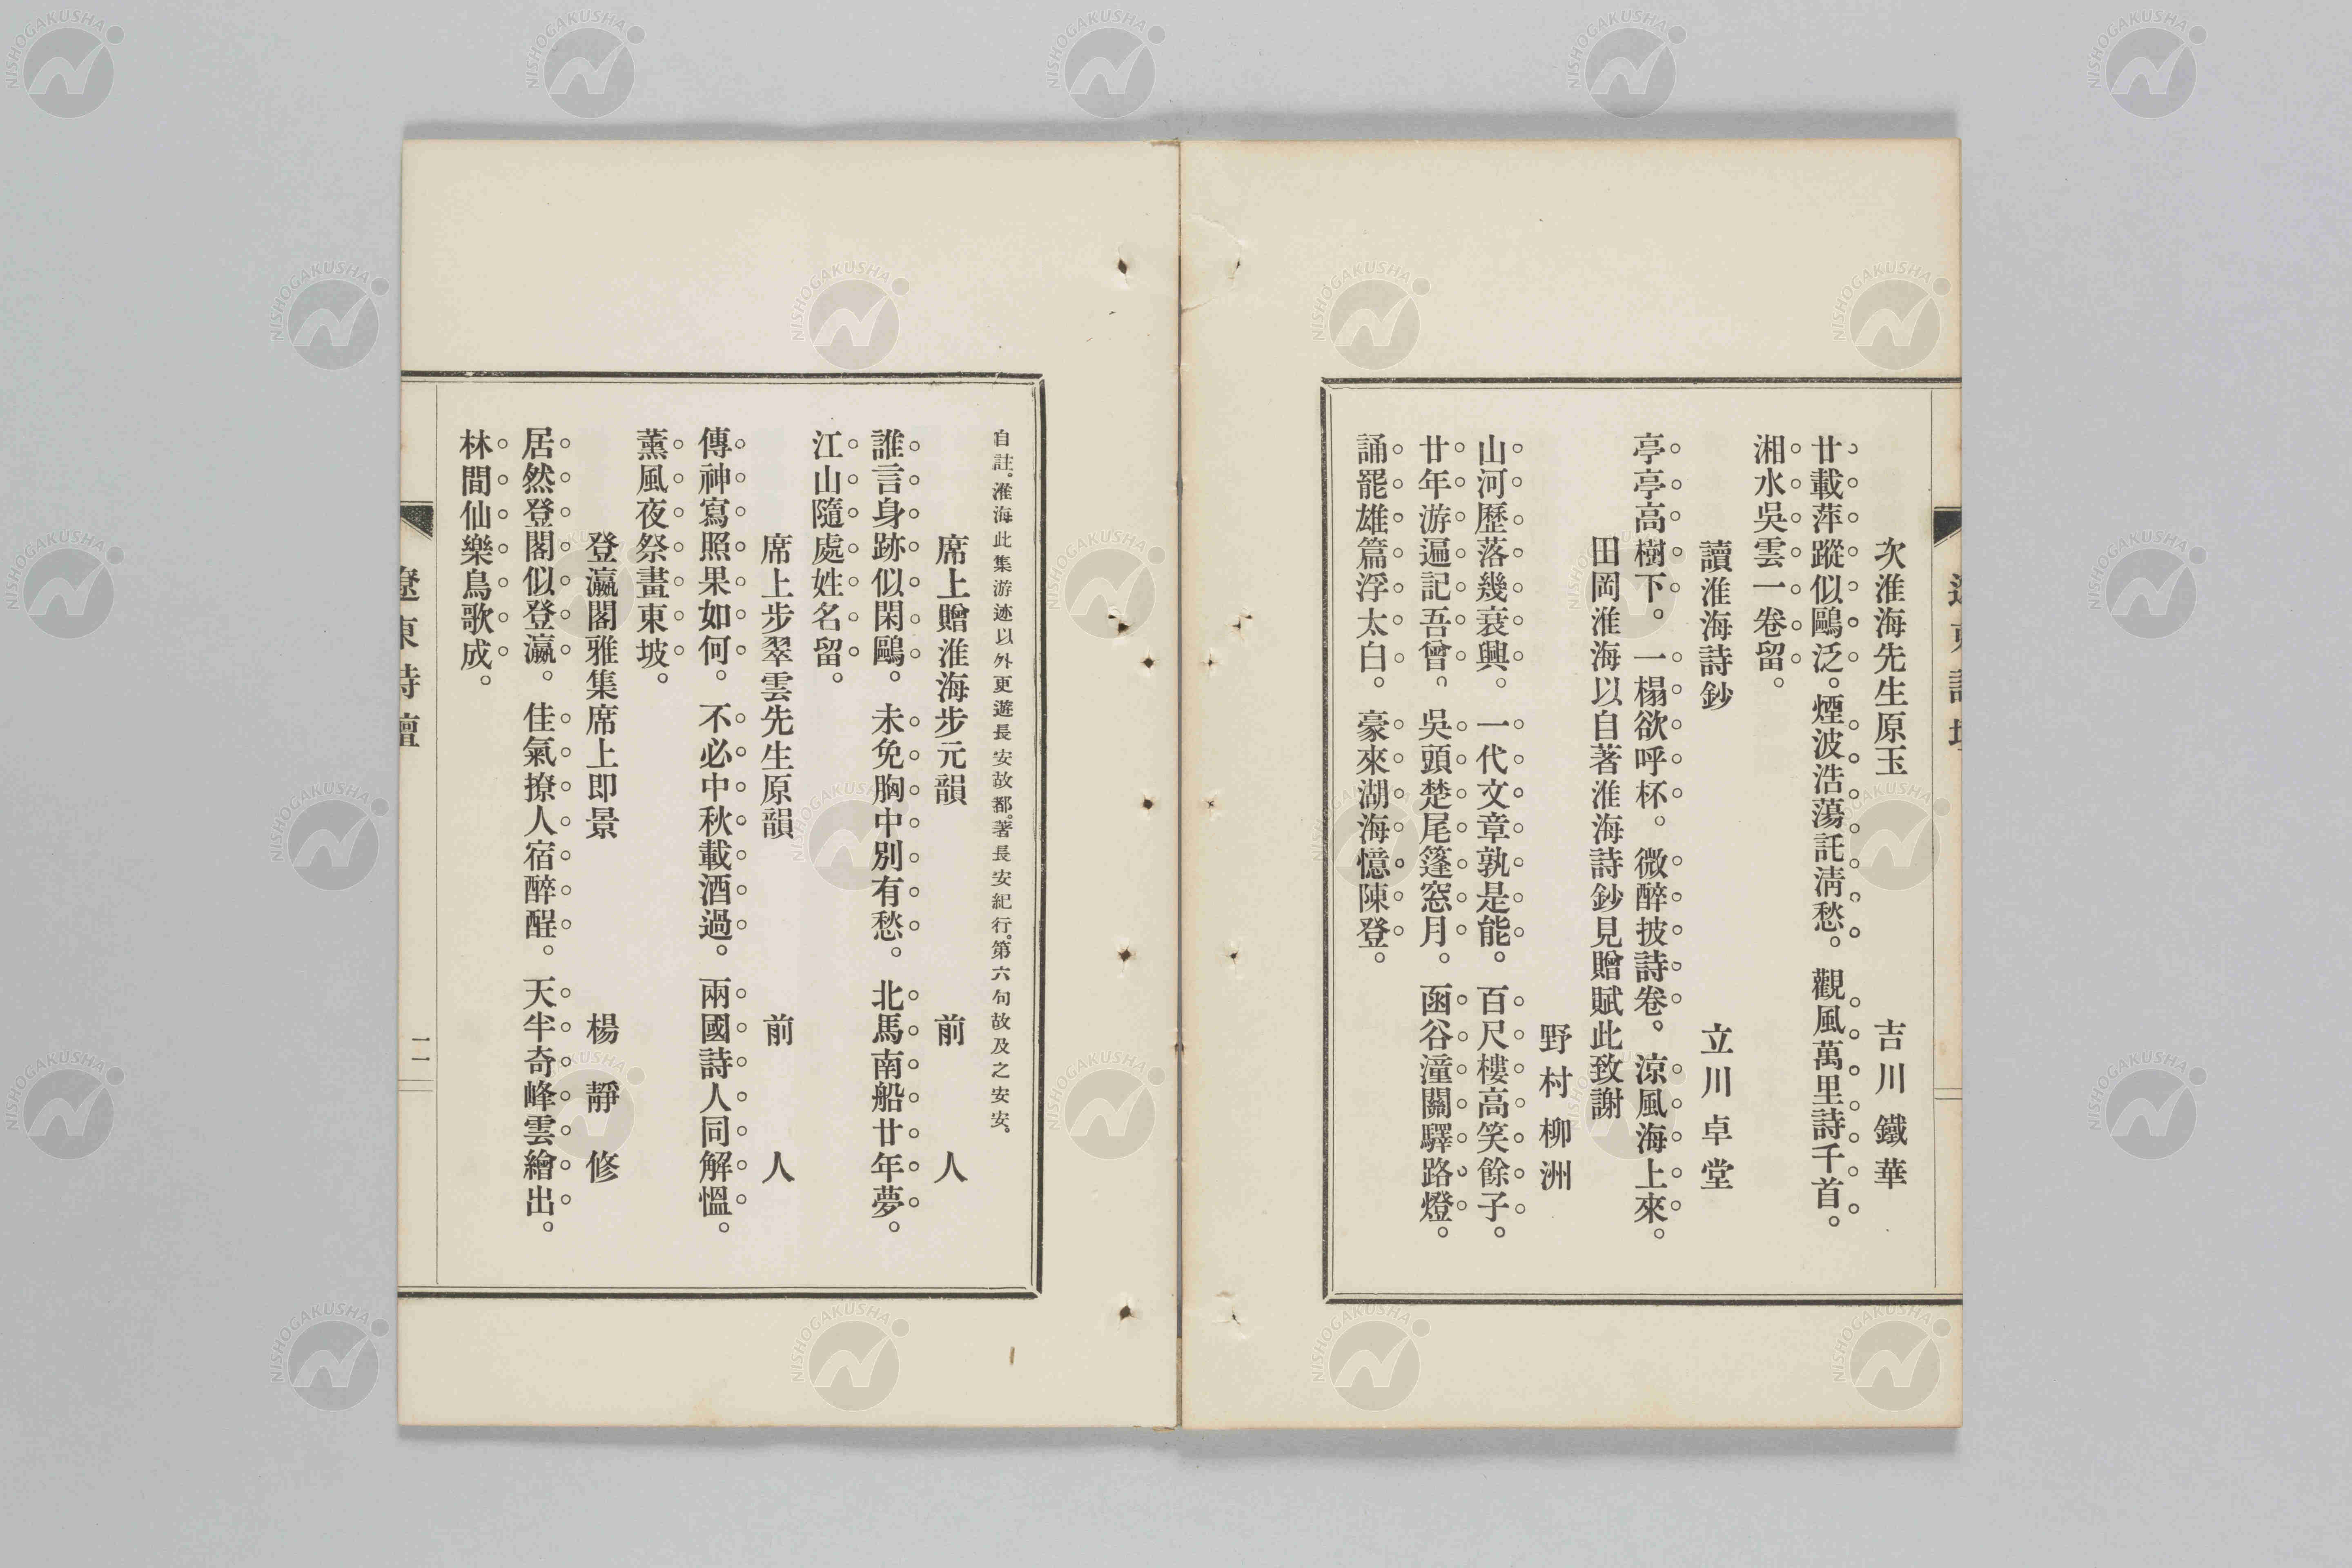 次淮海先生原玉 吉川鐵華
廿載萍蹤似鷗泛。煙波浩蕩託淸愁。觀風萬里詩千首。
湘水吳雲一卷留。
讀淮海詩鈔 立川卓堂
亭亭高樹下。一榻欲呼杯。微醉披詩卷。涼風海上來。
田岡淮海以自著淮海詩鈔見贈賦此致謝
野村柳洲
山河歷落幾衰興。一代文章孰是能。百尺樓高笑餘子。
廿年游遍記吾曾。吳頭楚尾篷窓月。函谷潼關驛路燈。
誦罷雄篇浮太白。豪來湖海憶陳登。
自註。淮海此集游迹以外更遊長安故都。著長安紀行。第六句故及之安安。
席上贈淮海步元韻 前人
誰言身跡似閑鷗。未免胸中別有愁。北馬南船廿年夢。
江山隨處姓名留。
席上步翠雲先生原韻 前人
傳神寫照果如何。不必中秋載酒過。兩國詩人同解慍。
薰風夜祭畫東坡。
登瀛閣雅集席上即景 楊靜修
居然登閣似登瀛。佳氣撩人宿醉醒。天半奇峰雲繪出。
林間仙樂鳥歌成。
遼東詩壇
二
NISHOGAKUSHA